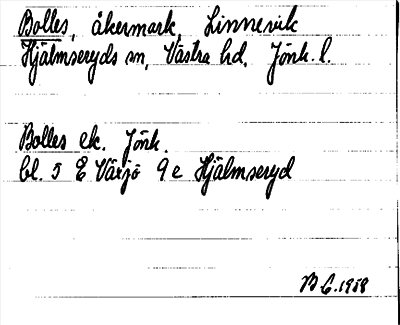 Bolles, åkermark, Linnevik
Hjälmseryds sn, Västra hd, Jönk. l.
Bolles ek. Jönk.
bl. 5 E Växjö 9 e Hjälmseryd
1958